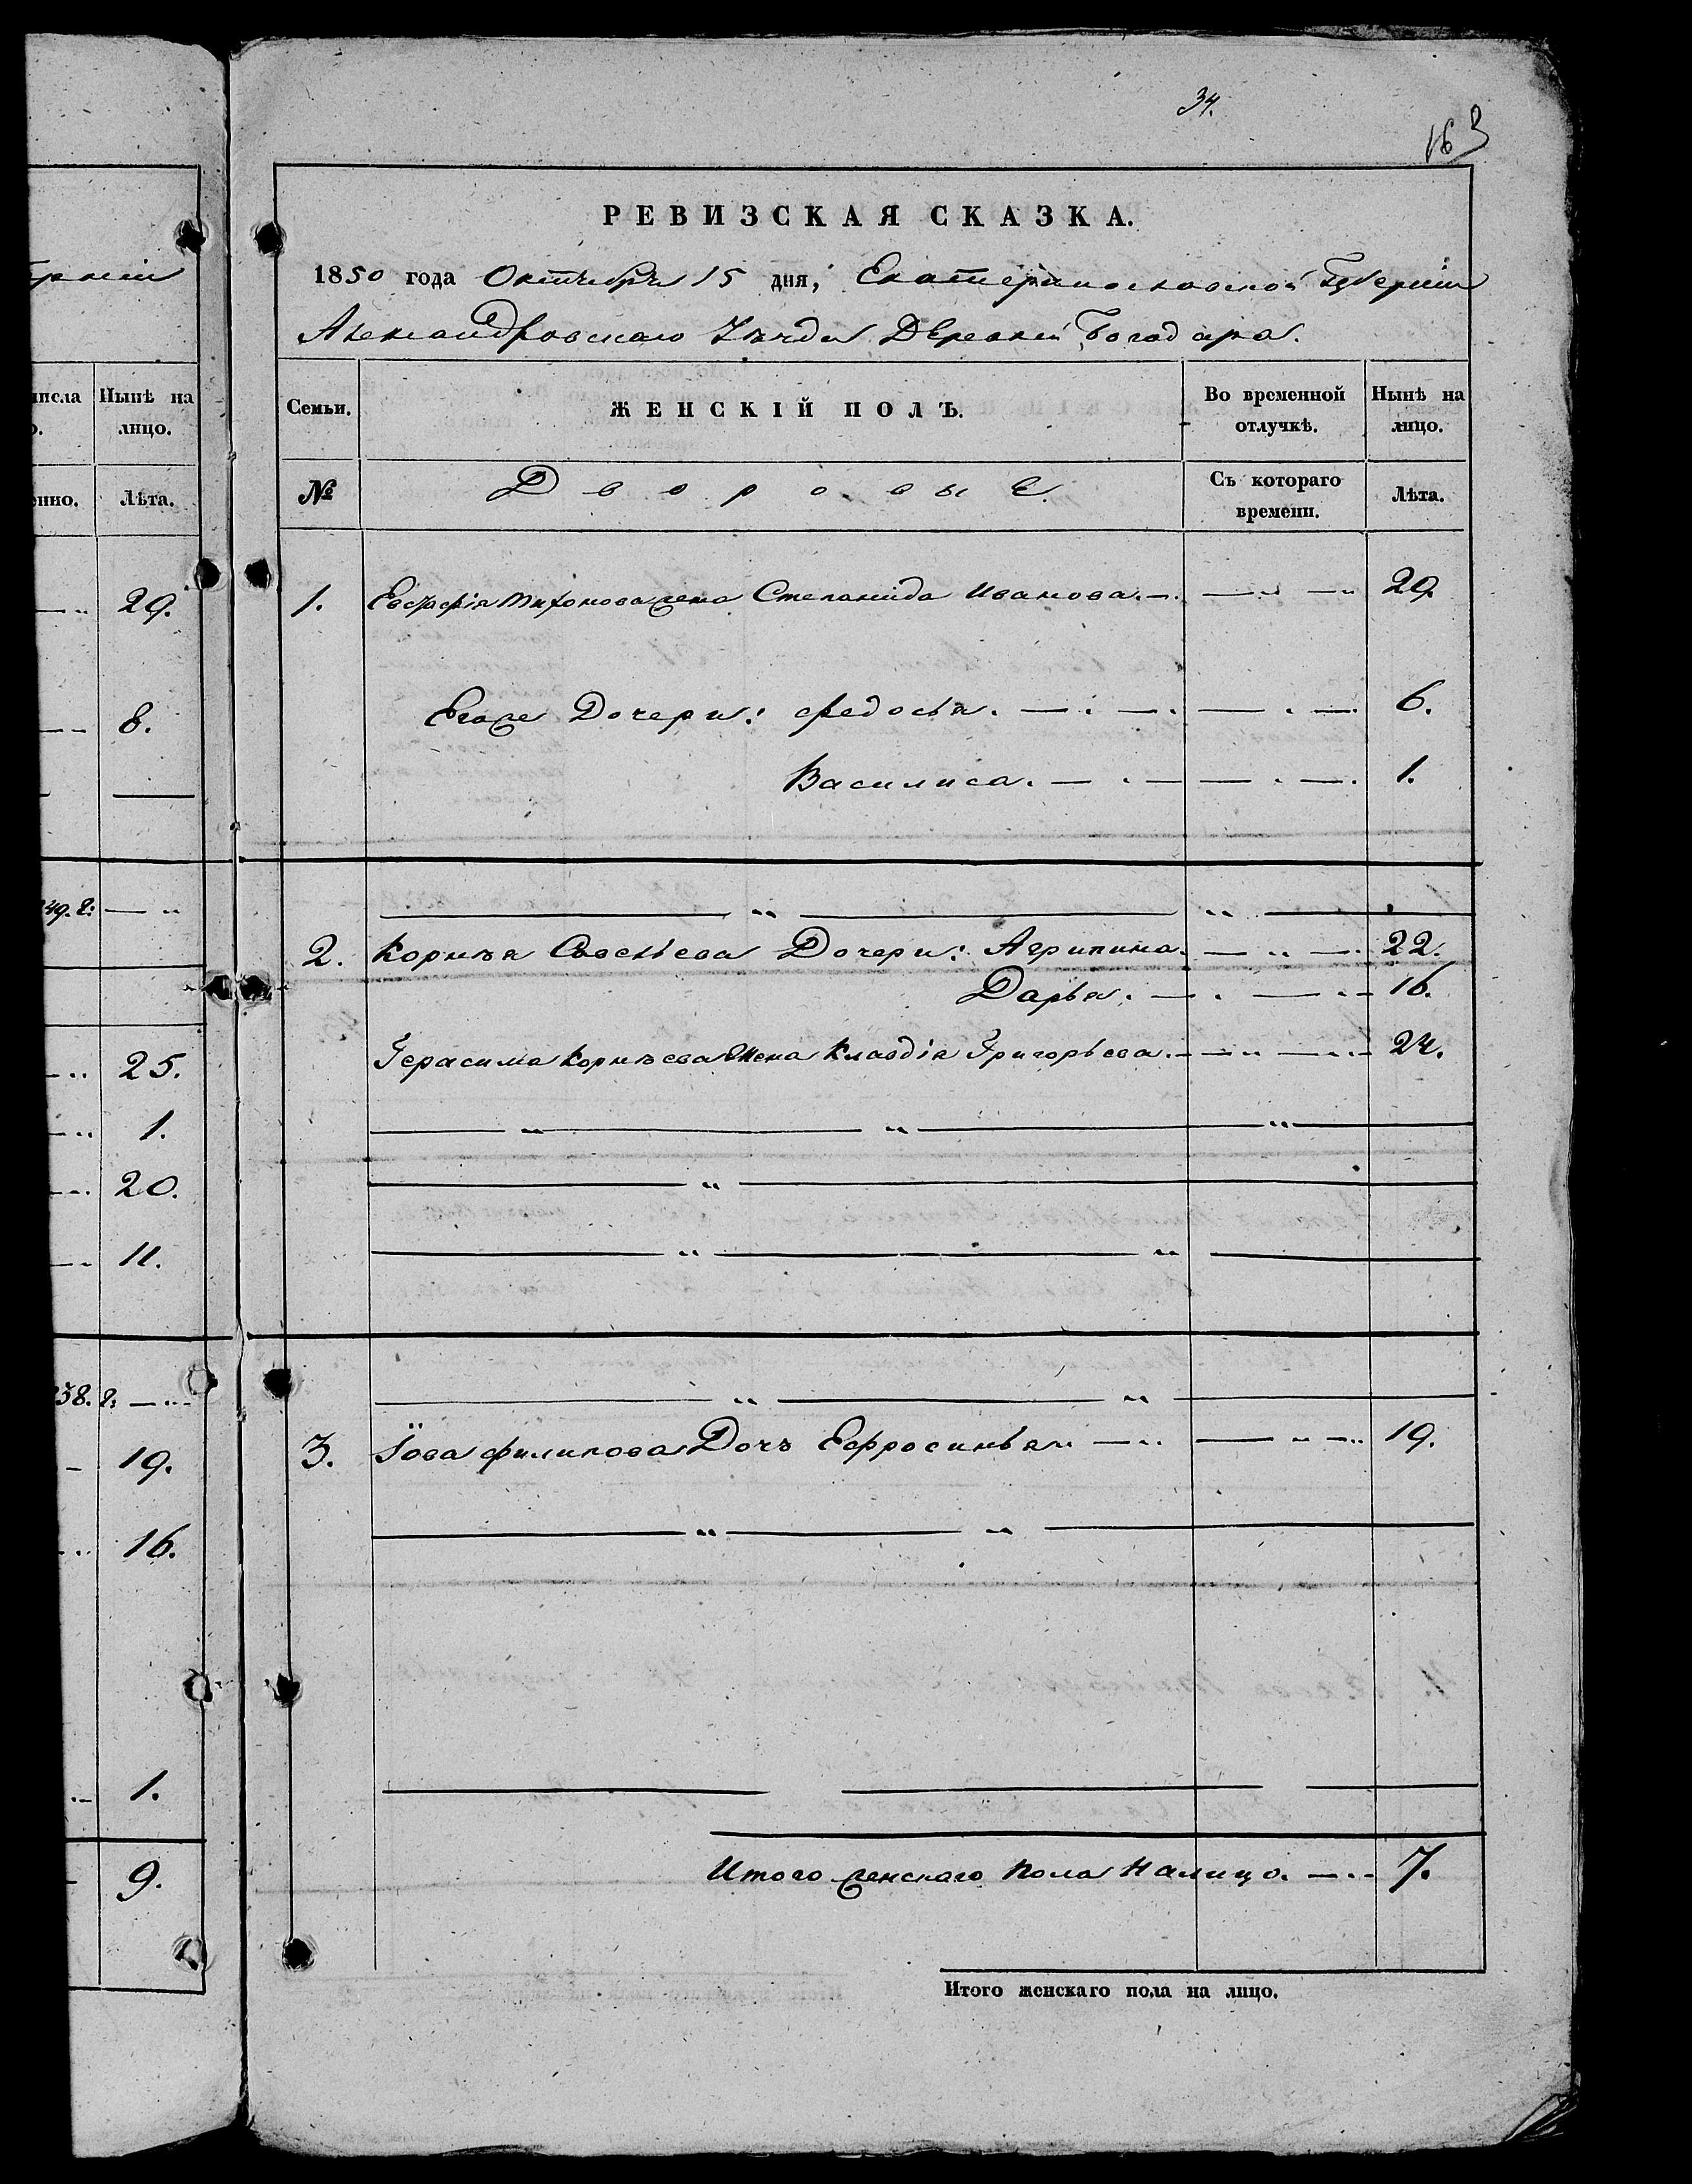 34.
163
РЕВИЗСКАЯ СКАЗКА.
1850 года Октября 15 дня, Екатеринославской Губерніи
Александровскаго Уѣзда Деревни Богодара.
Семьи. ЖЕНСКІЙ ПОЛЪ. Во временной отлучкѣ. Нынѣ на лицо.
№ Дворовые. Съ котораго времени. Лѣта.
1. Евстафія Тихонова жена Степанида Иванова. 29.
Егоже Дочери: Федосья. 6.
Василиса. 1.
2. Корнѣя Савельева Дочери: Агрипина. 22.
Дарья. 16.
Герасима Корнѣева Жена Клавдія Григорьева. 24.
3. Іова Филипова Дочь Ефросинья 19.
Итого женскаго пола налицо. 7.
Итого женскаго пола на лицо.
Нынѣ на
лицо.
Лѣта.
29.
8.
49. г:
25.
1.
20.
11.
38. г:
19.
16.
1.
9.